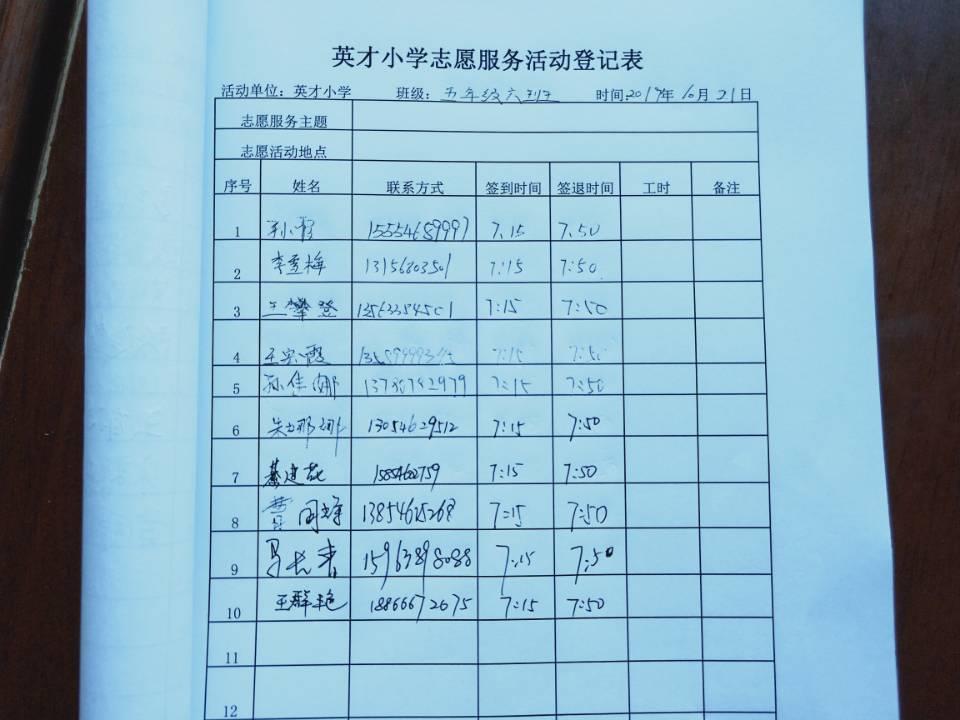 英才小学志愿服务活动登记表
活动单位：英才小学 班级：五年级六班 时间:2019年10月21日
志愿服务主题
志愿活动地点
序号 姓名 联系方式 签到时间 签退时间 工时 备注
1 15554659997 7.15 7.50
2 李爱梅 13156803501 7:15 7:50
3 王攀登 13563384501 7:15 7:50
4 王宗霞 7:15 7:50
5 孙佳娜 7:15 7:50
6 朱娜娜 13054629512 7:15 7:50
7 綦建花 7:15 7:50
8 7:15 7:50
9 马长青 15963898088 7:15 7:50
10 王群艳 7:15 7:50
11
12